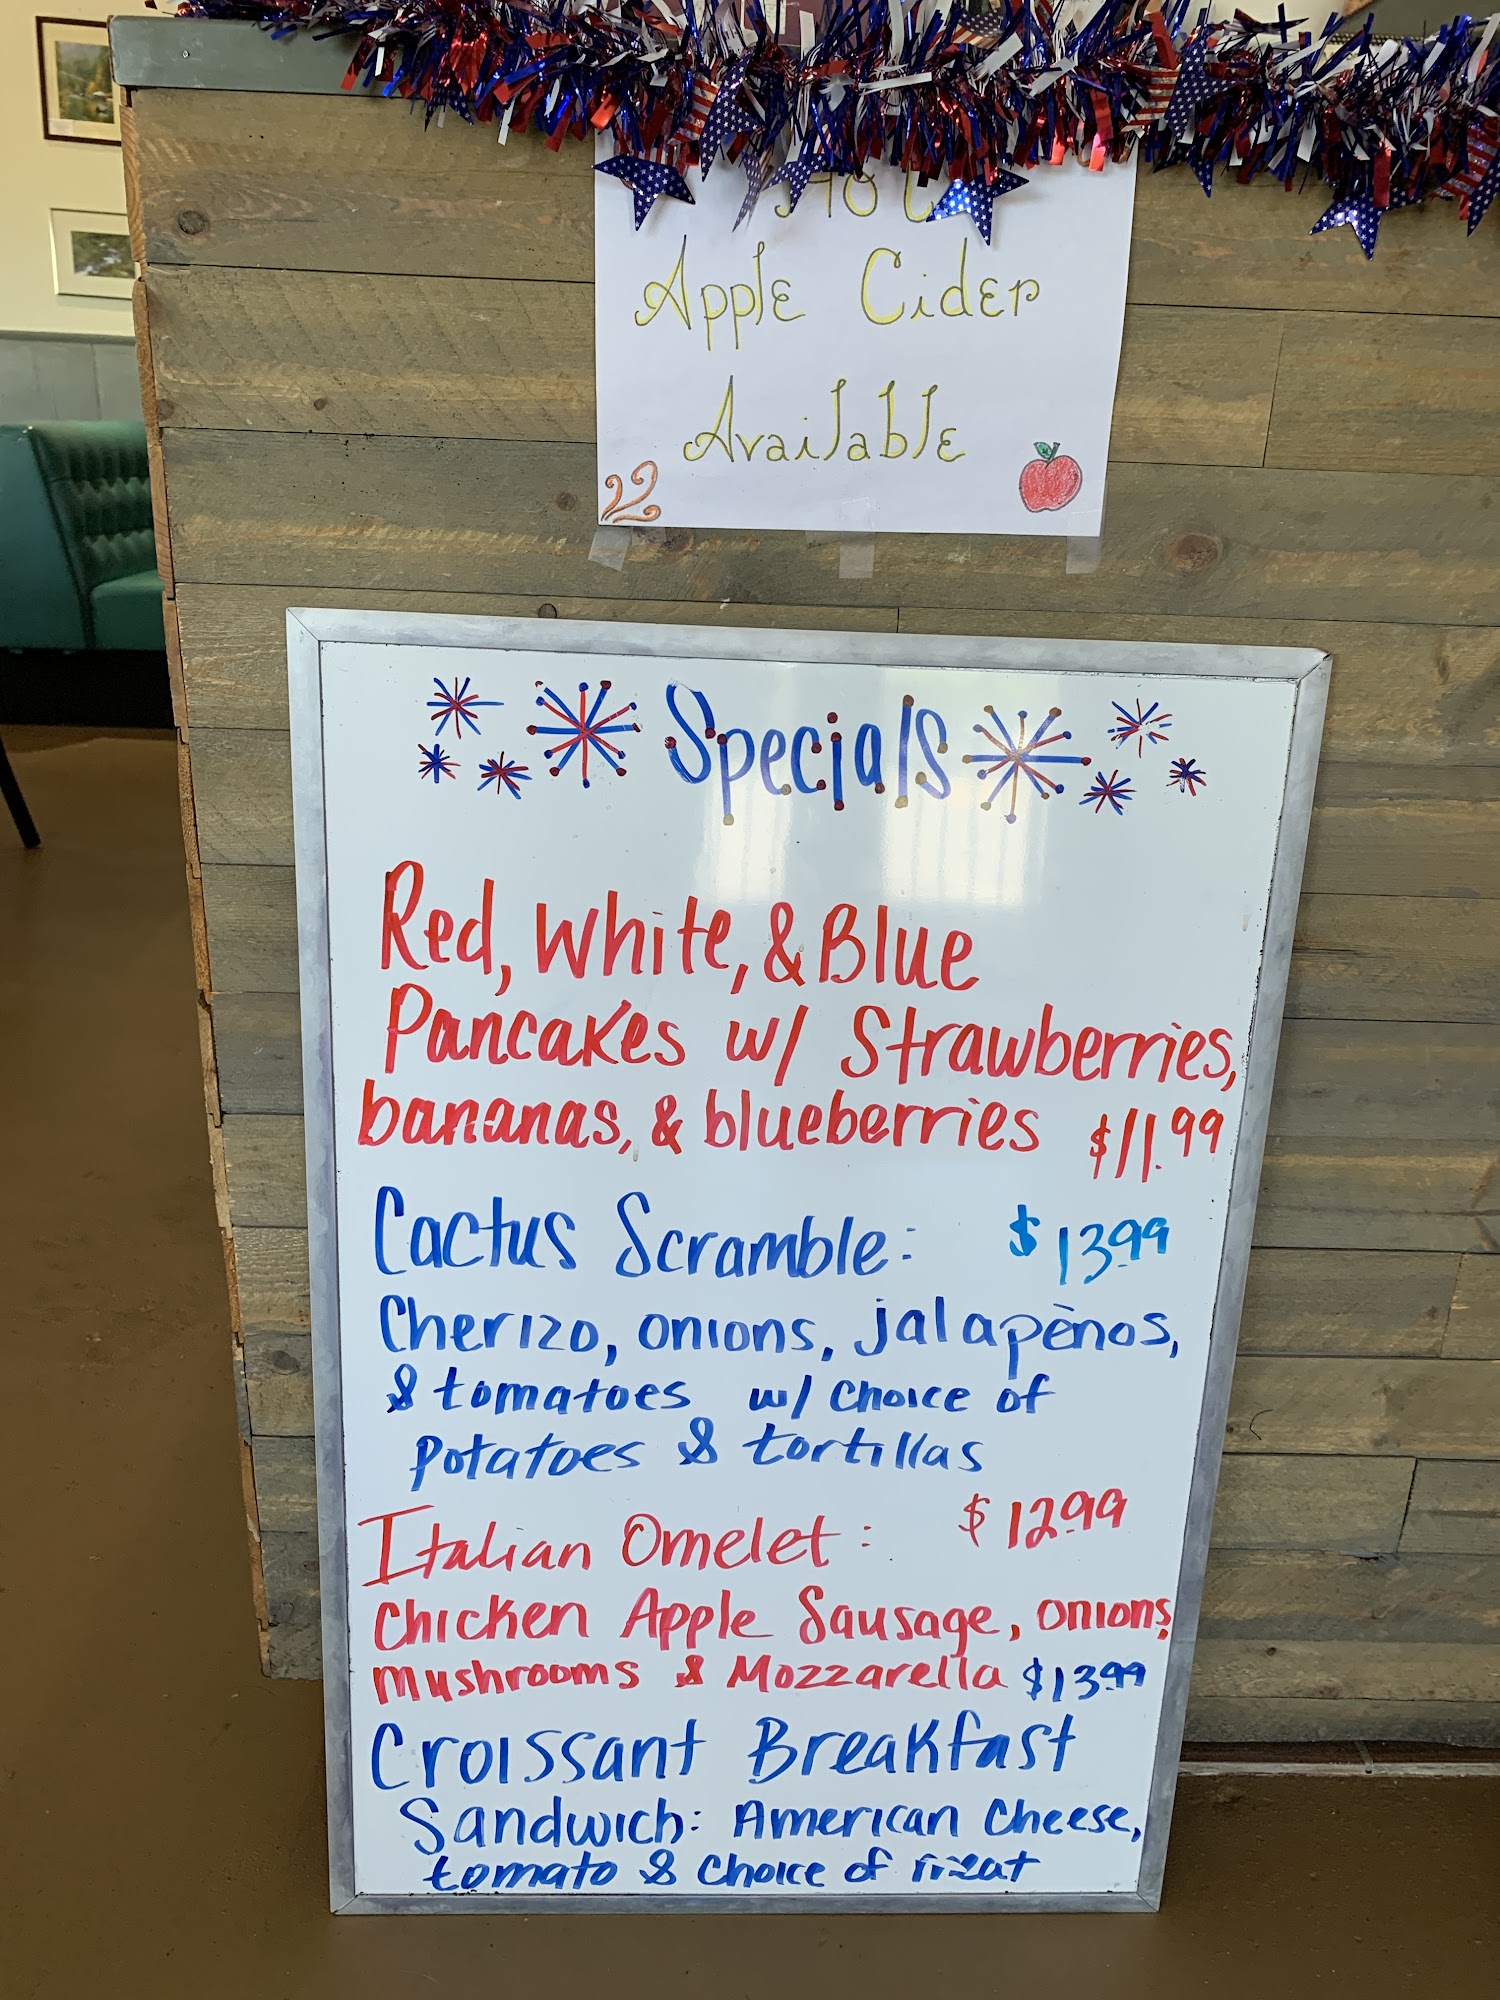 Hot
Apple Cider
Available
Specials
Red, White, & Blue
Pancakes w/ Strawberries,
bananas, & blueberries $11.99
Cactus Scramble: $13.99
Cherizo, onions, jalapènos,
& tomatoes w/ choice of
potatoes & tortillas
Italian Omelet: $12.99
Chicken Apple Sausage, onions,
mushrooms & Mozzarella $13.99
Croissant Breakfast
Sandwich: American Cheese,
tomato & choice of meat